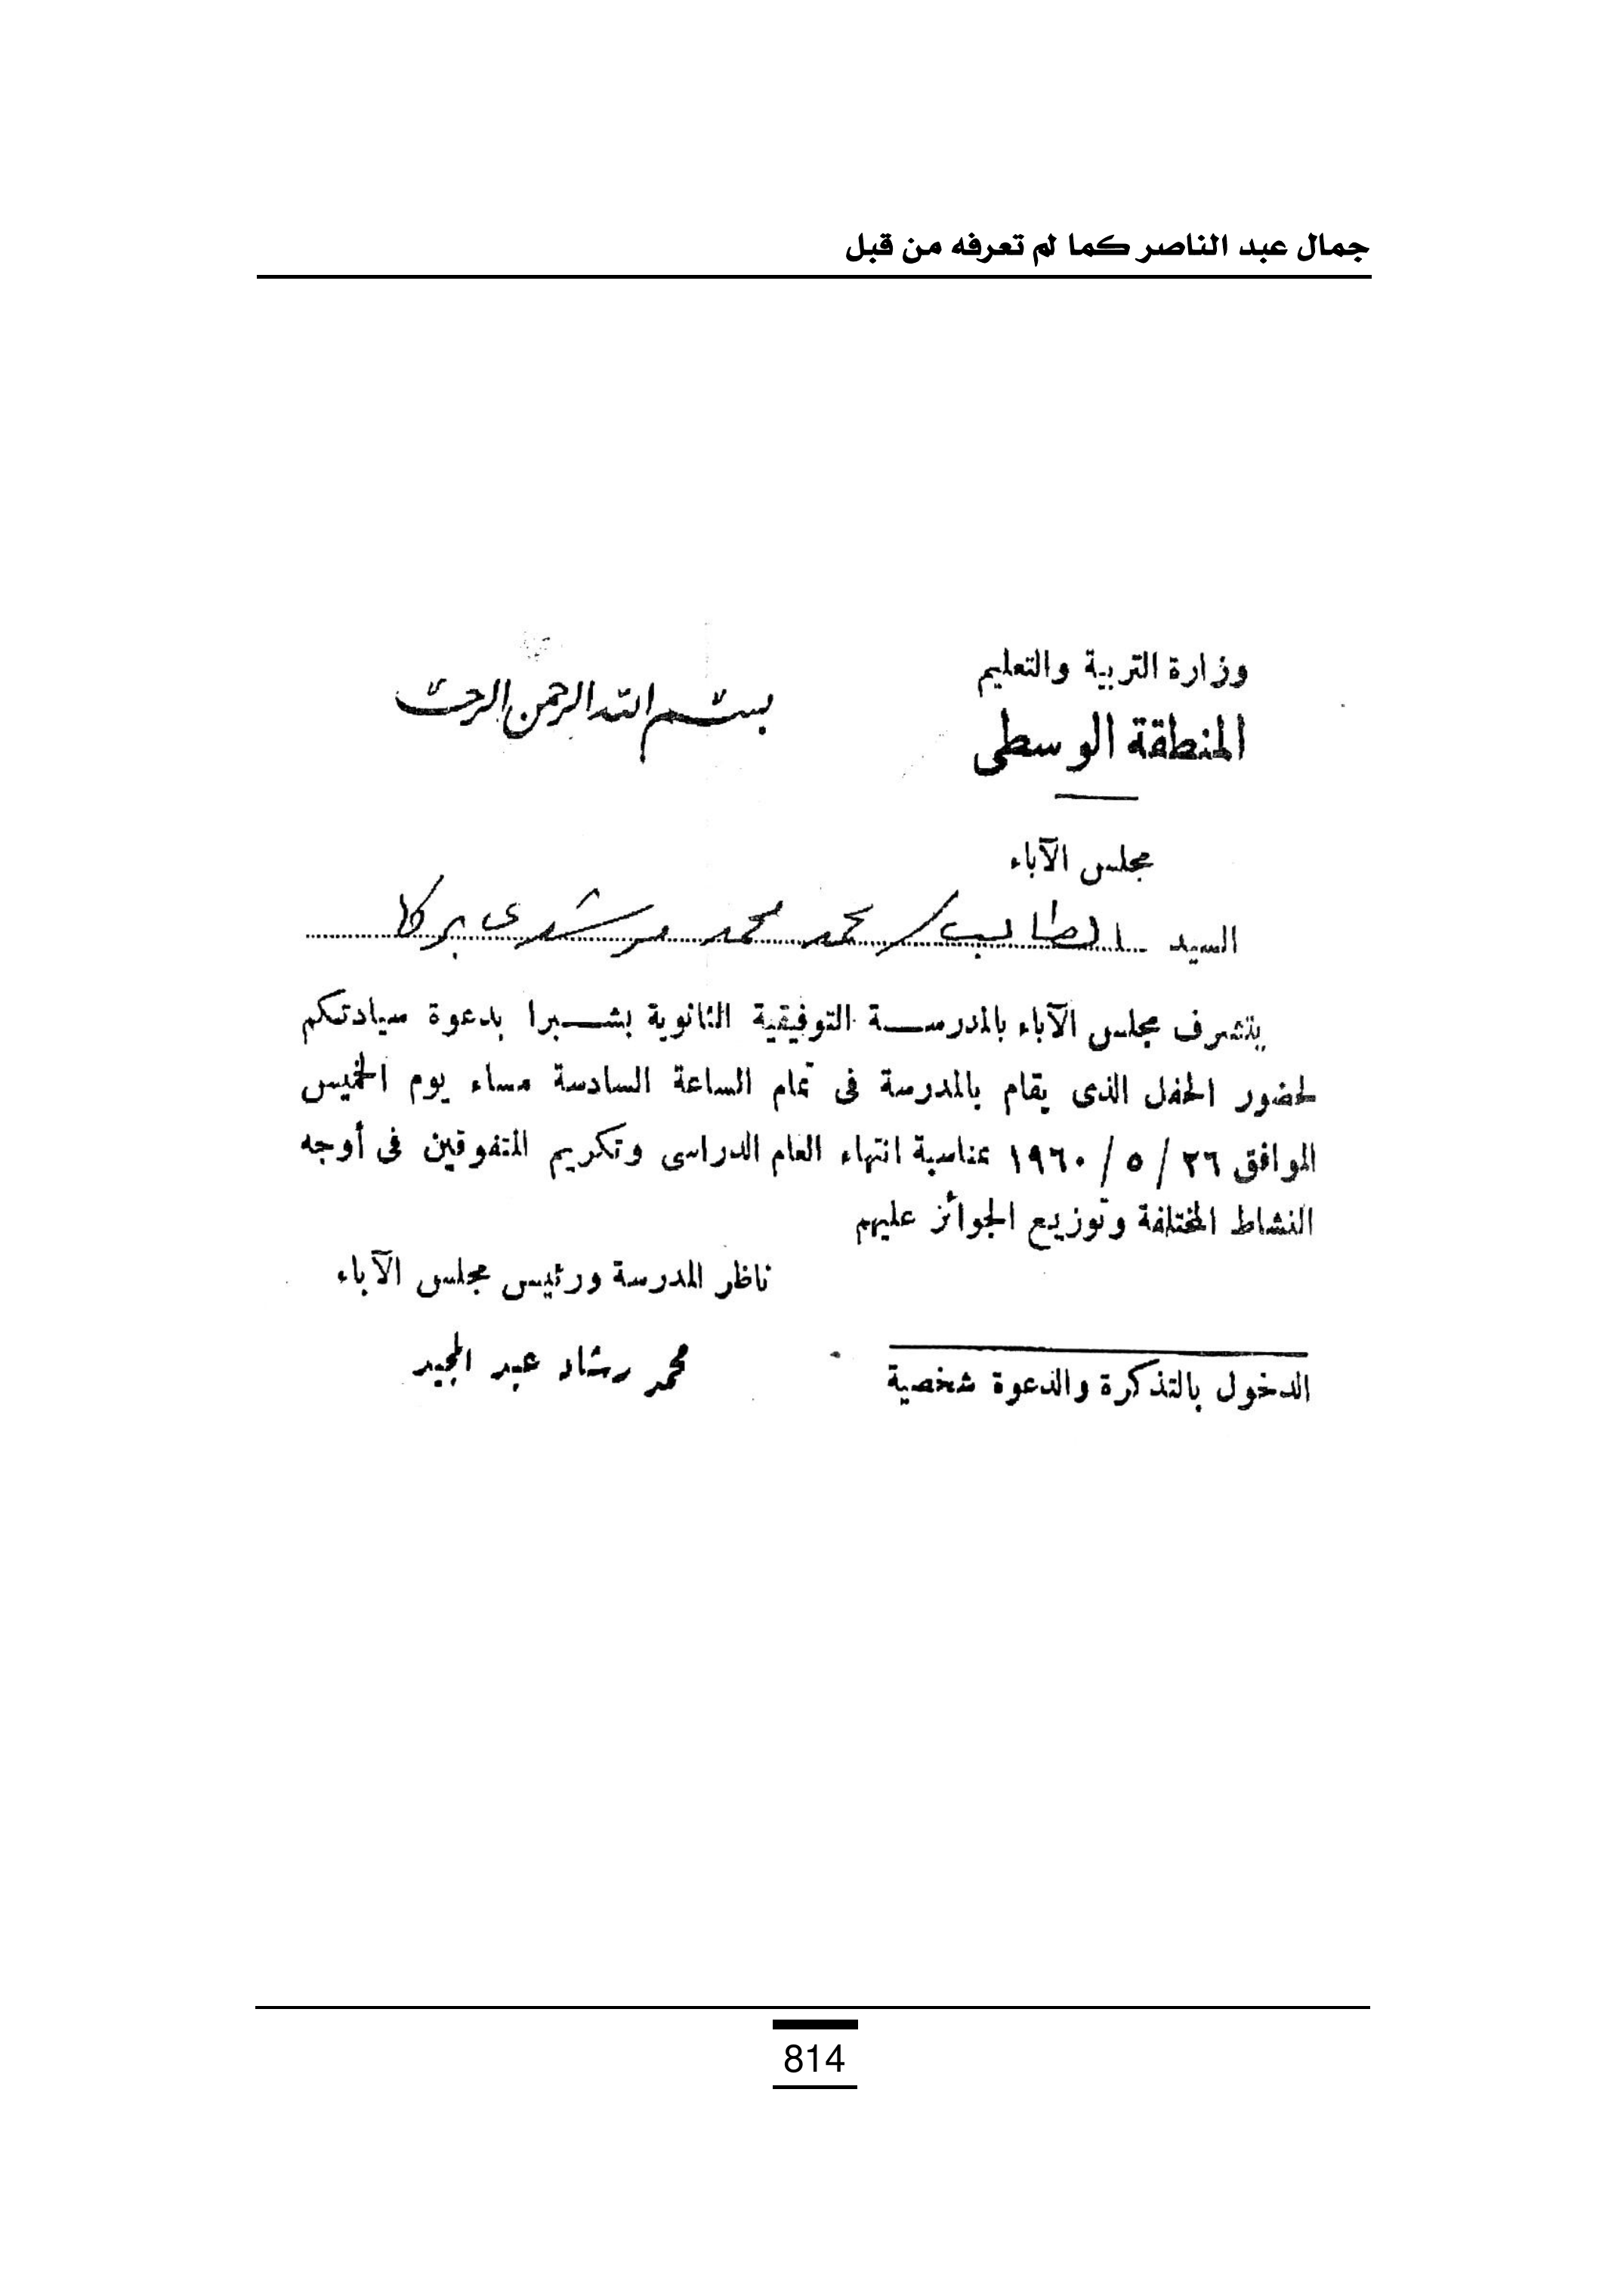 جمال عبد الناصر كما لم تعرفه من قبل
وزارة التربية والتعليم
بسم الله الرحمن الرحيم
المنطقة الوسطى
مجلس الآباء
السيد الطالب / محمد محمد مرشدى بركات
يتشرف مجلس الآباء بالمدرسة التوفيقية الثانوية بشبرا بدعوة سيادتكم
لحضور الحفل الذى يقام بالمدرسة فى تمام الساعة السادسة مساء يوم الخميس
الموافق ٢٦ / ٥ / ١٩٦٠ بمناسبة انتهاء العام الدراسى وتكريم المتفوقين فى أوجه
النشاط المختلفة وتوزيع الجوائز عليهم
ناظر المدرسة ورئيس مجلس الآباء
محمد رشاد عبد المجيد
الدخول بالتذكرة والدعوة شخصية
814